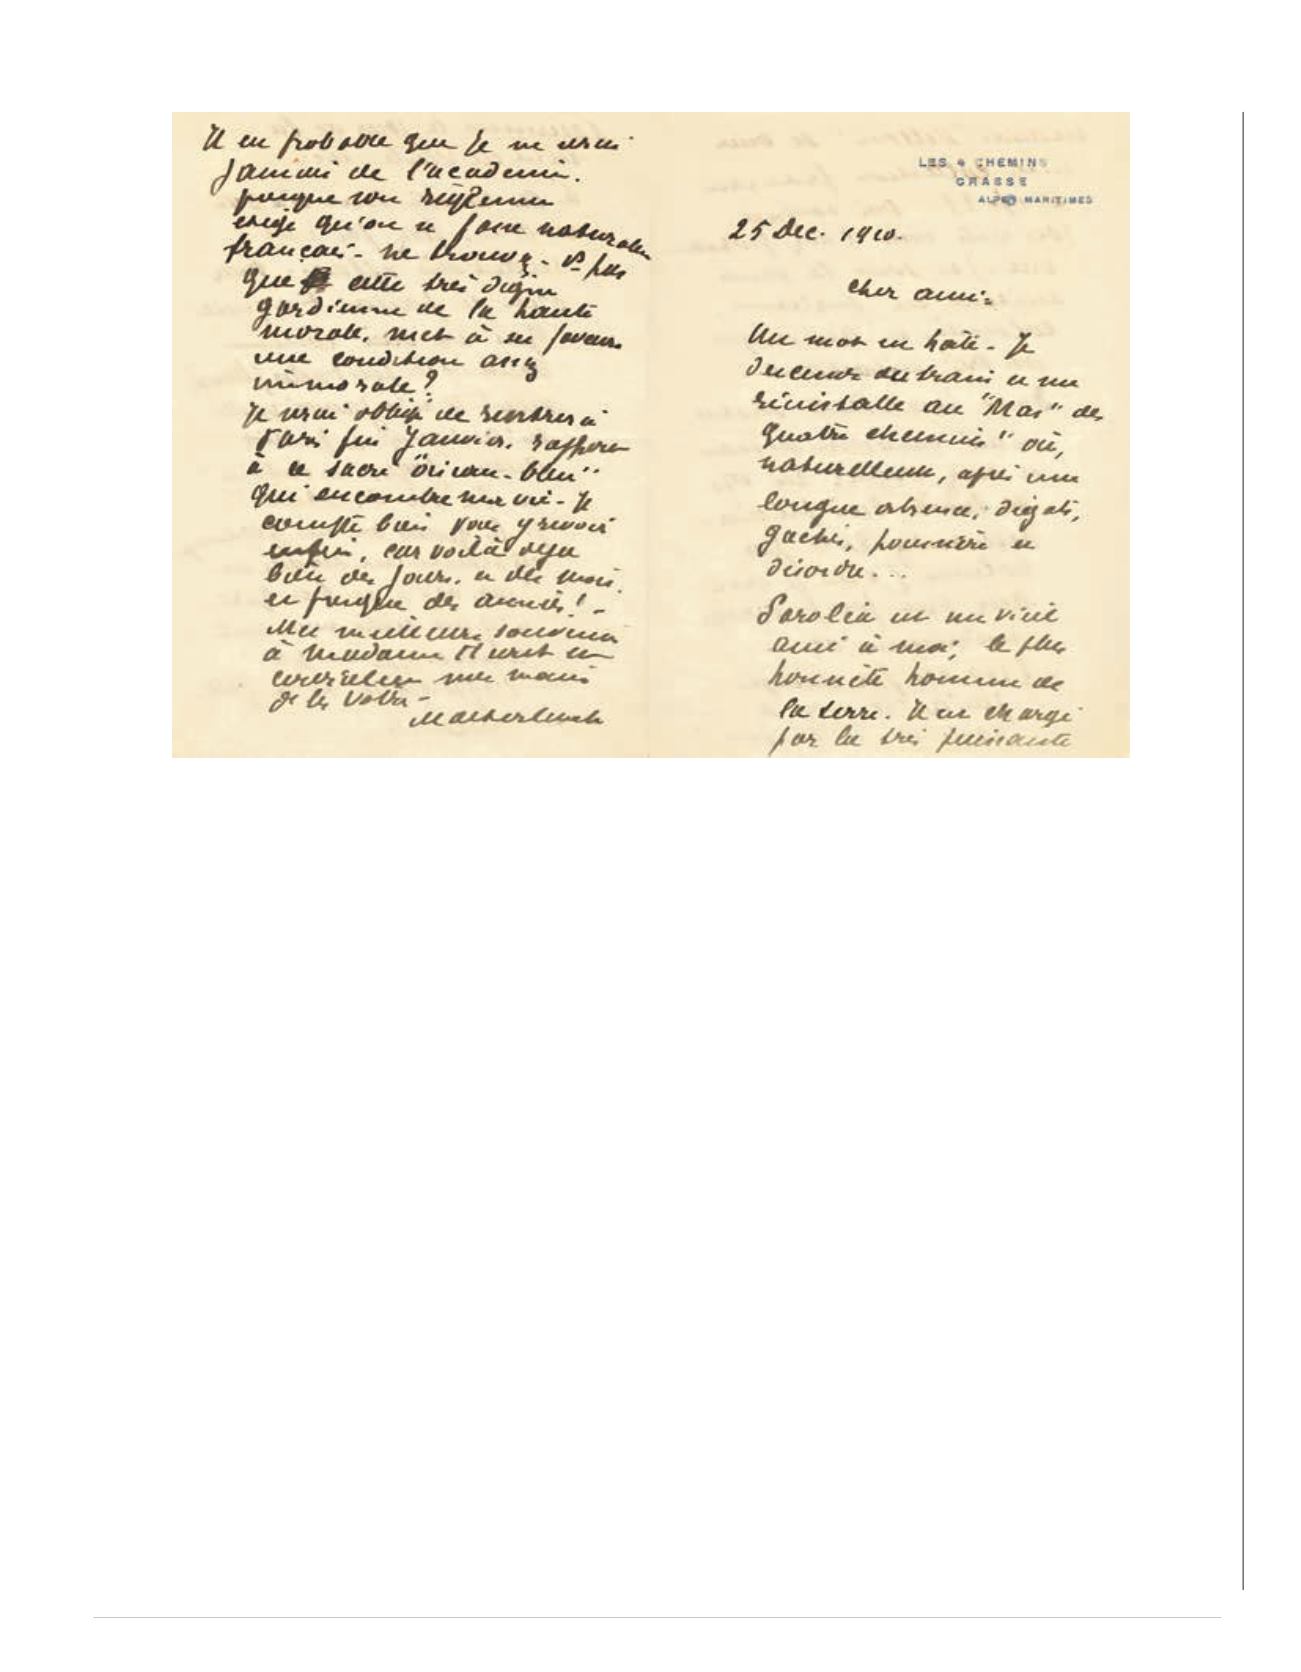 Il est probable que je ne serai
jamais de l'académie.
puisque son règlement
exige qu'on se fasse naturaliser
français - ne trouvez-vs pas
que cette très digne
gardienne de la haute
morale, met à ses faveurs
une condition assez
immorale?
Je serai obligé de rentrer à
Paris fin Janvier, rapport
à ce sacré "Oiseau-bleu"
qui encombre ma vie - Je
compte bien vous y revoir
enfin, car voilà déjà
bien des jours, et des mois,
et presque des années! -
Mes meilleurs souvenirs
à madame et
mes mains
de les vôtres -
Maeterlinck
LES 4 CHEMINS
GRASSE
ALPES MARITIMES
25 Dec. 1910.
Cher ami:
Un mot en hâte - Je
descends du train et me
réinstalle au "Mas" des
quatre chemins" où,
naturellement, après une
longue absence, dégâts,
gachis, poussière et
désordre...
Sarolea est un vieil
ami à moi, le plus
honnête homme de
la terre. Il est chargé
par la très puissante